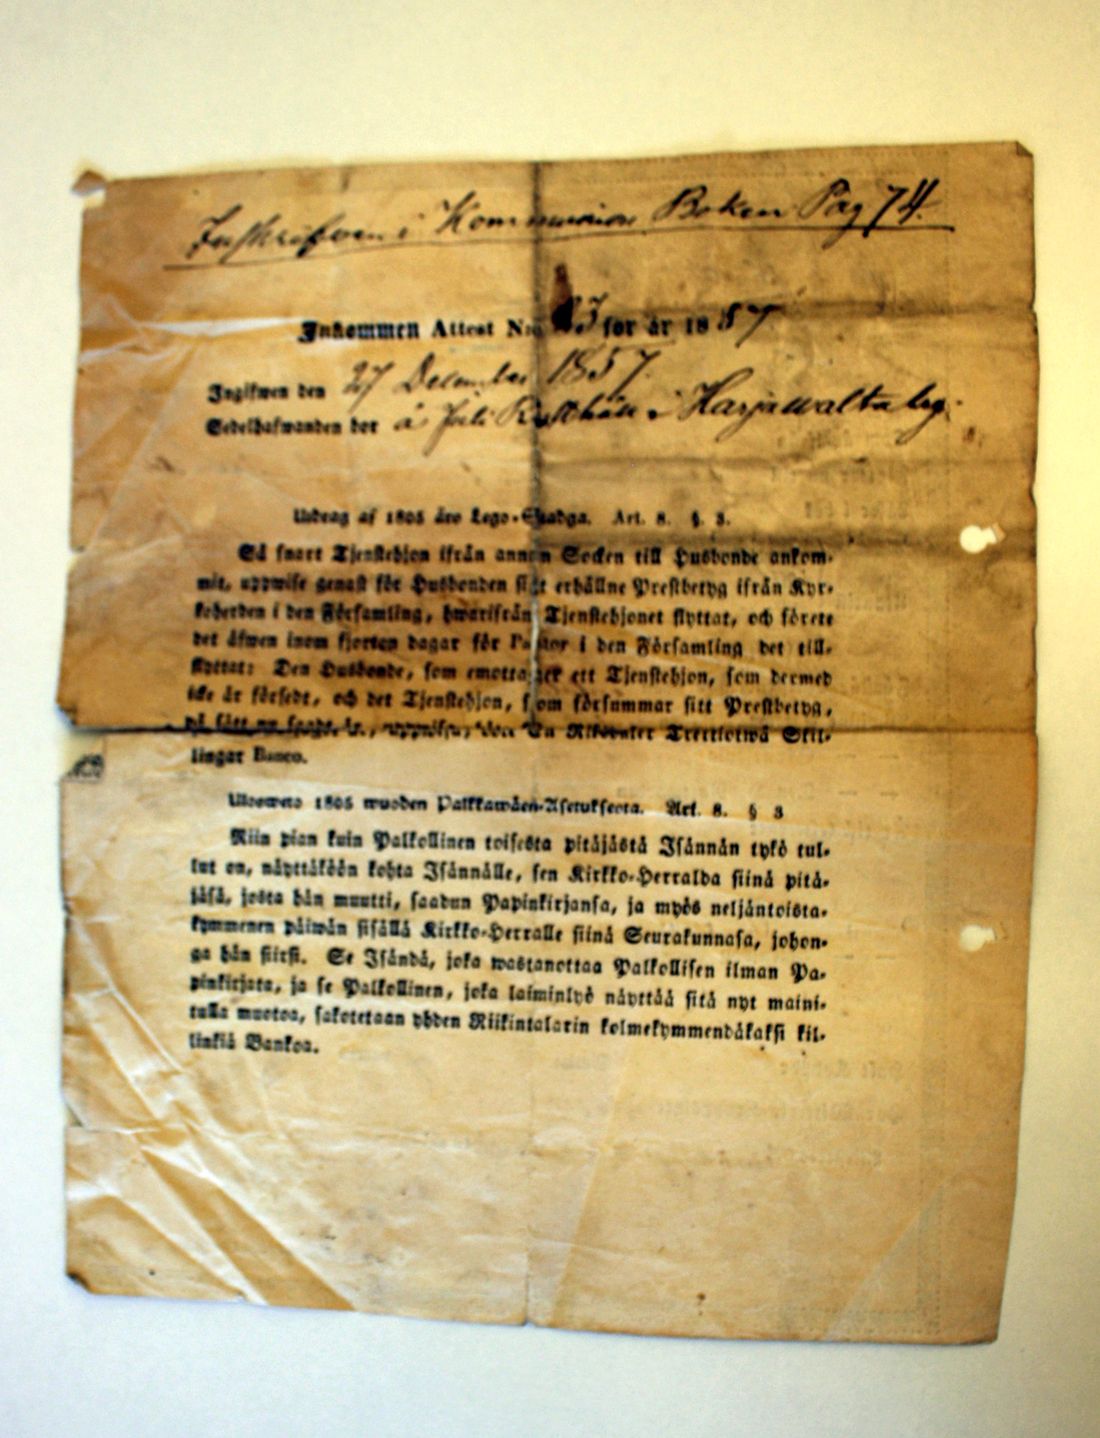 Inskrifven i Kommunion Boken Pag 74.
Inkommen Attest N:o för år 1857
Ingifwen den 27 December 1857.
Sedelhafwanden bor å i Harjawalta by.
Utdrag af 1805 års Lego-Stadga. Art. 8. §. 3.
Så snart Tjenstehjon ifrån annan Socken till Husbonde ankom-
mit, uppwise genast för Husbonden sitt erhållne Prestbetyg ifrån Kyr-
koherden i den Församling, hwarifrån Tjenstehjonet flyttat, och förete
det äfwen inom fjorton dagar för Pastor i den Församling det till-
flyttat: Den Husbonde, som emottager ett Tjenstehjon, som dermed
icke är försedt, och det Tjenstehjon, som försummar sitt Prestbetyg,
på sätt nu sagdt är, uppwisa, böte En Riksdaler Trettiotwå Skil-
lingar Banco.
Ulosweto 1805 wuoden Palkkawäen-Asetuksesta. Art. 8. § 3
Niin pian kuin Palkollinen toisesta pitäjästä Isännän tykö tul-
lut on, näyttäköön kohta Isännälle, sen Kirkko-Herralda siinä pitä-
jäsä, josta hän muutti, saadun Papinkirjansa, ja myös neljäntoista-
kymmenen päiwän sisällä Kirkko-Herralle siinä Seurakunnasa, johon-
ga hän siirsi. Se Isändä, joka wastanottaa Palkollisen ilman Pa-
pinkirjata, ja se Palkollinen, joka laiminlyö näyttää sitä nyt maini-
tulla muotoa, sakotetaan yhden Riikintalarin kolmekymmendäkaksi kil-
linkiä Bankoa.